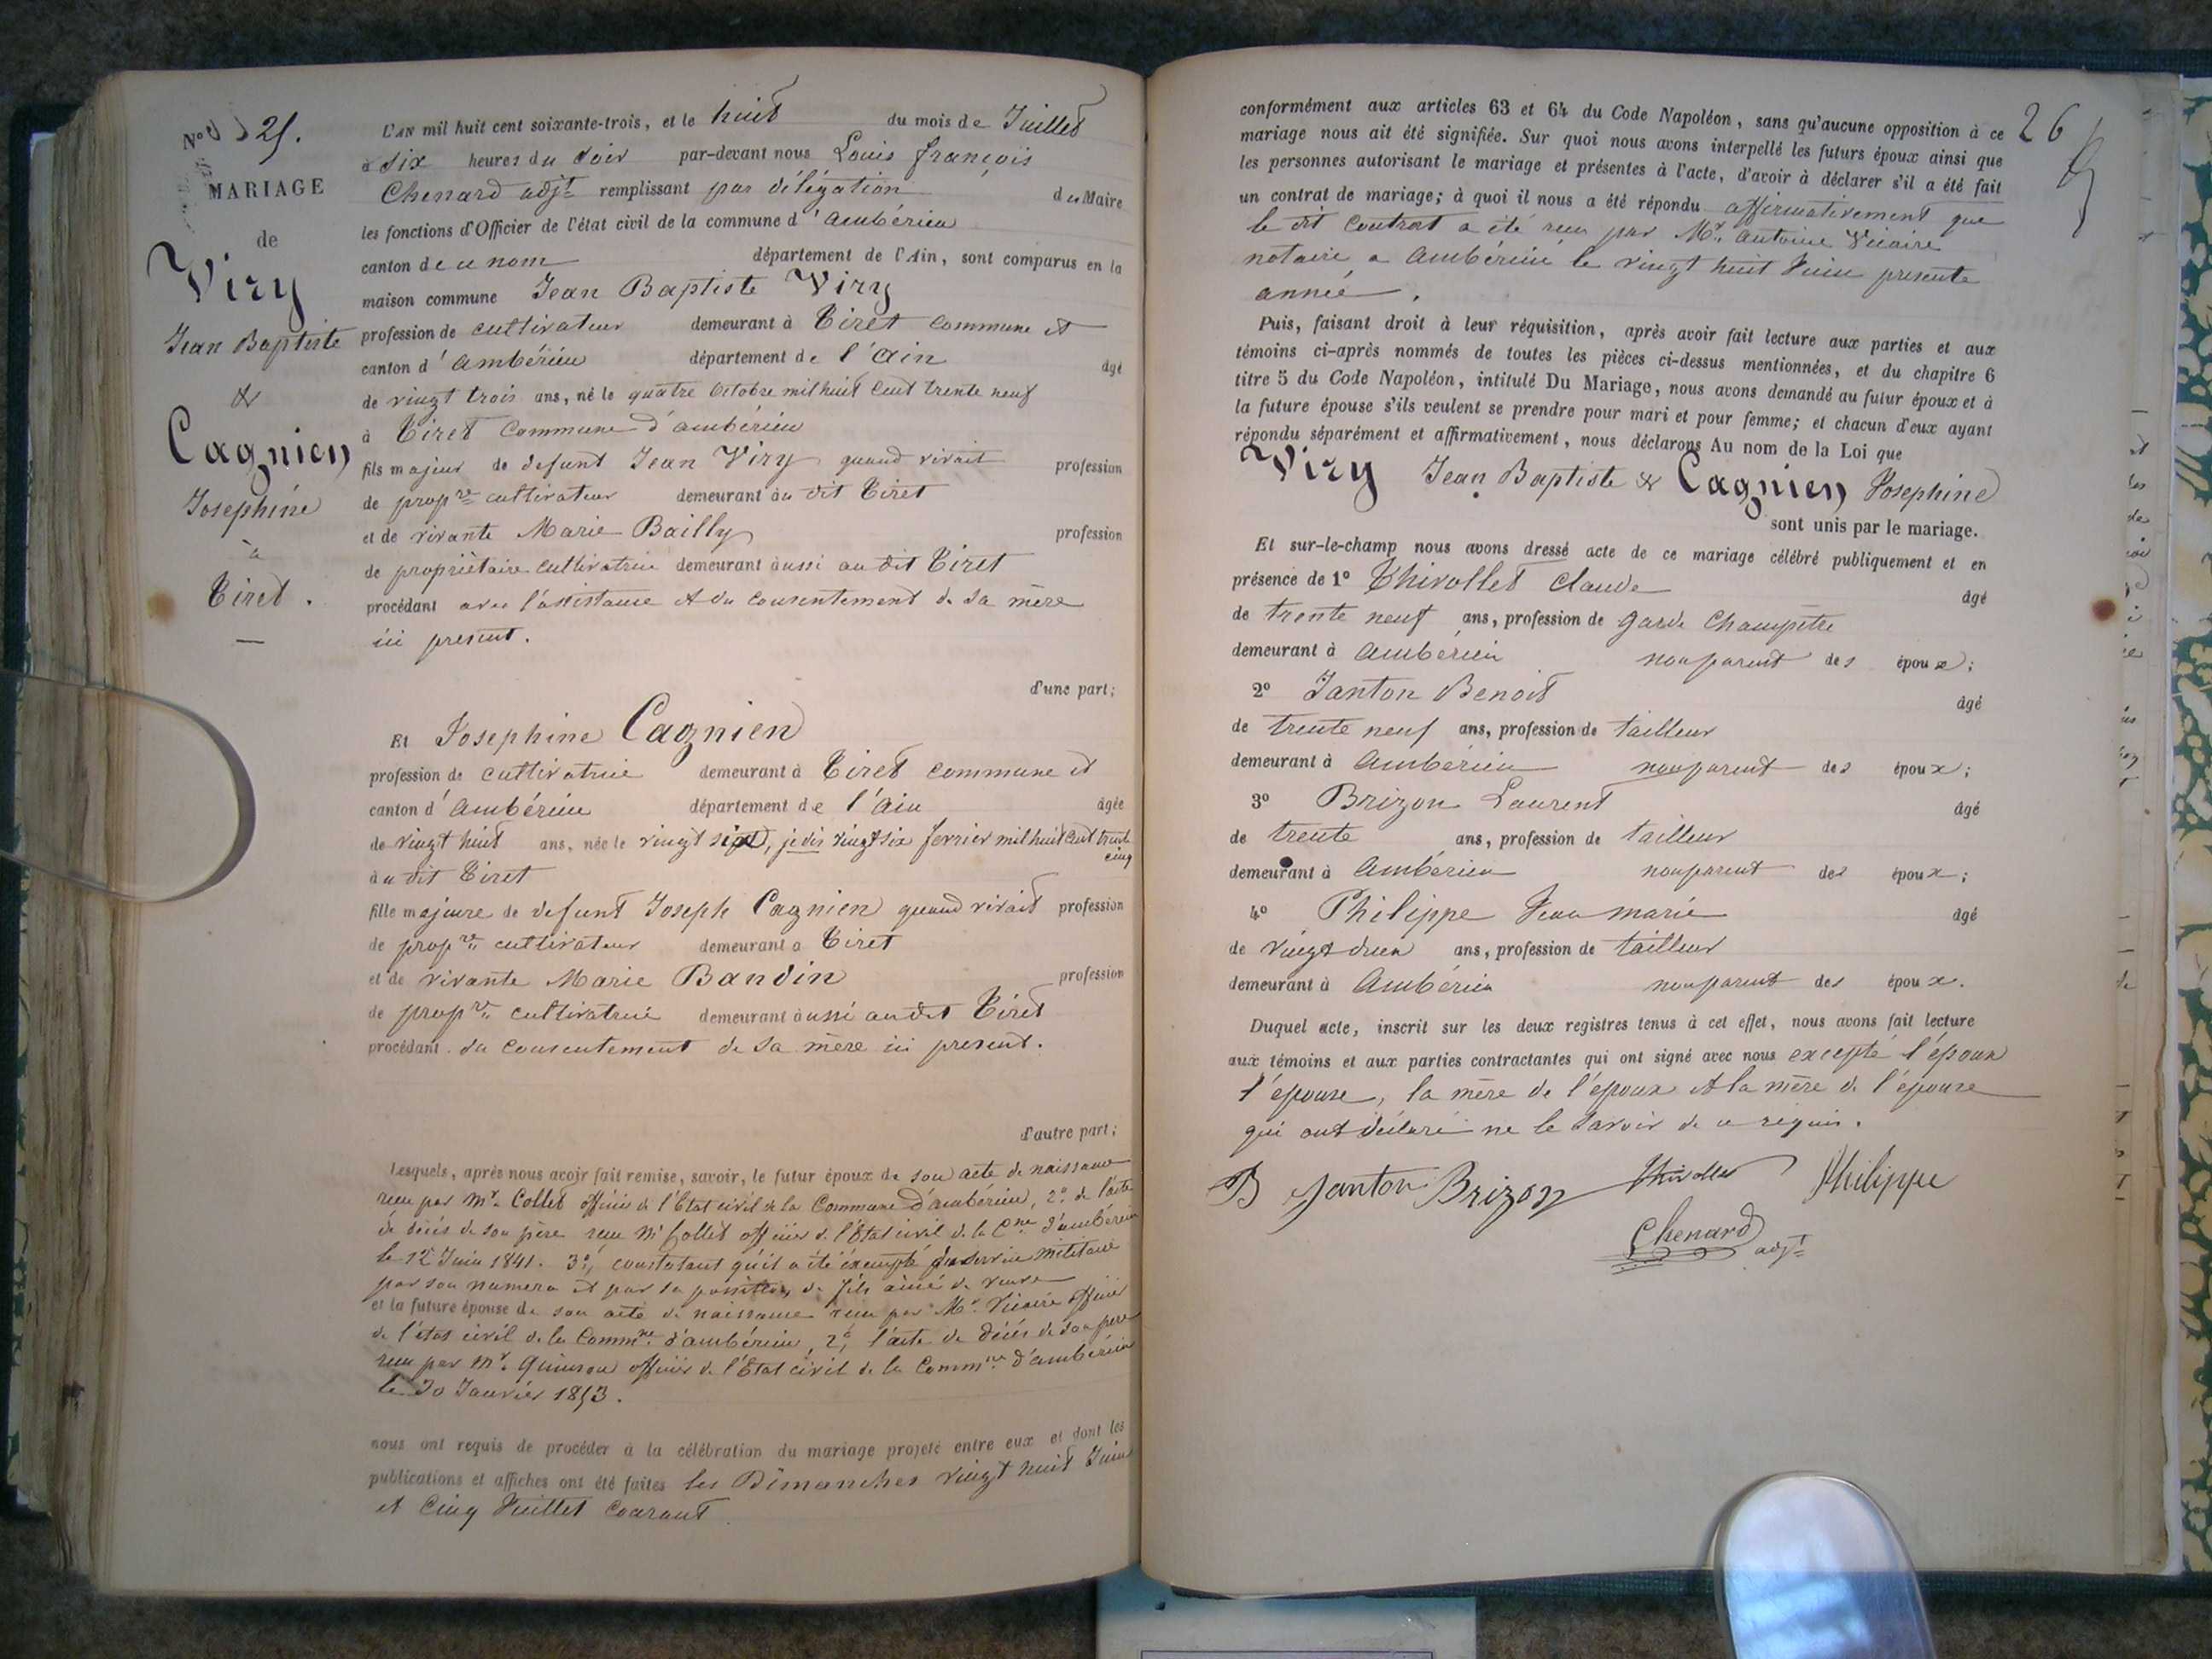 N° 25.
MARIAGE
de
Viry
Jean Baptiste
&
Cagnien
Josephine
à
Tiret.
L'AN mil huit cent soixante-trois, et le huit du mois de Juillet
à six heures du soir par-devant nous Louis françois
Chenard adjt remplissant par délégation du Maire
les fonctions d'Officier de l'état civil de la commune d'ambérieu
canton de ce nom département de l'Ain, sont comparus en la
maison commune Jean Baptiste Viry
profession de cultivateur demeurant à Tiret commune et
canton d'ambérieu département de l'Ain âgé
de vingt trois ans, né le quatre Octobre mil huit cent trente neuf
à Tiret commune d'ambérieu
fils majeur de defunt Jean Viry quand vivait profession
de propre cultivateur demeurant au dit Tiret
et de vivante Marie Bailly profession
de propriètaire cultivatrice demeurant aussi au dit Tiret
procédant avec l'assistance et du consentement de sa mère
ici present.
d'une part;
Et Josephine Cagnien
profession de cultivatrice demeurant à Tiret commune et
canton d'ambérieu département de l'Ain âgée
de vingt huit ans, née le vingt sixt, je dis vingt six fevrier mil huit cent trente
cinq
au dit Tiret
fille majeure de defunt Joseph Cagnien quand vivait profession
de propre cultivateur demeurant a Tiret
et de vivante Marie Bandin profession
de propre cultivatrice demeurant aussi au dit Tiret
procédant du consentement de sa mère ici present.
d'autre part;
Lesquels, après nous avoir fait remise, savoir, le futur époux de son acte de naissance
reçu par Mr. Collet officier de l'Etat civil de la Commune d'ambérieu, 2° de l'acte
de décès de son père reçu Mr Collet officier de l'Etat civil de la Cne d'ambérieu
le 12 Juin 1841. 3°, constatant qu'il a été éxempté du service militaire
par son numero et par sa position de fils ainé de veuve
et la future épouse de son acte de naissance reçu par Mr. Vicaire officier
de l'état civil de la Commne d'ambérieu, 2°, l'acte de décès de son pere
reçu par Mr. Quinson officier de l'Etat civil de la Commne d'ambérieu
le 30 Janvier 1853.
nous ont requis de procéder à la célébration du mariage projeté entre eux et dont les
publications et affiches ont été faites les Dimanches vingt huit Juin
et cinq Juillet courant
26
conformément aux articles 63 et 64 du Code Napoléon, sans qu'aucune opposition à ce
mariage nous ait été signifiée. Sur quoi nous avons interpellé les futurs époux ainsi que
les personnes autorisant le mariage et présentes à l'acte, d'avoir à déclarer s'il a été fait
un contrat de mariage; à quoi il nous a été répondu affirmativement que
le dit contrat a été reçu par Mr. Antoine Vicaire
notaire a Ambérieu le vingt huit Juin presente
année.
Puis, faisant droit à leur réquisition, après avoir fait lecture aux parties et aux
témoins ci-après nommés de toutes les pièces ci-dessus mentionnées, et du chapitre 6
titre 5 du Code Napoléon, intitulé Du Mariage, nous avons demandé au futur époux et à
la future épouse s'ils veulent se prendre pour mari et pour femme; et chacun d'eux ayant
répondu séparément et affirmativement, nous déclarons Au nom de la Loi que
Viry Jean Baptiste & Cagnien Josephine
sont unis par le mariage.
Et sur-le-champ nous avons dressé acte de ce mariage célébré publiquement et en
présence de 1° Thivollet Claude âgé
de trente neuf ans, profession de garde champêtre
demeurant à Ambérieu non parent des époux;
2° Janton Benoit âgé
de trente neuf ans, profession de tailleur
demeurant à Ambérieu non parent des époux;
3° Brizon Laurent âgé
de trente ans, profession de tailleur
demeurant à Ambérieu non parent des époux;
4° Philippe Jean marie âgé
de vingt deux ans, profession de tailleur
demeurant à Ambérieu non parent des époux.
Duquel acte, inscrit sur les deux registres tenus à cet effet, nous avons fait lecture
aux témoins et aux parties contractantes qui ont signé avec nous excepté l'époux
l'épouse, la mère de l'époux et la mère de l'épouse
qui ont déclaré ne le savoir de ce requis.
B Janton Brizon Thivollet Philippe
Chenard adjt